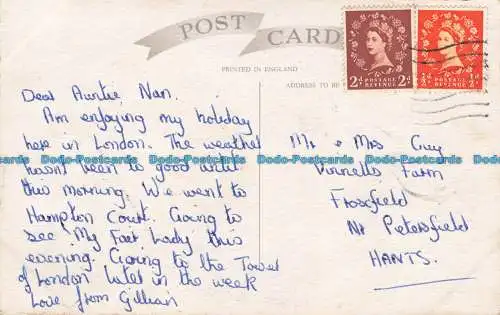 POST CARD
PRINTED IN ENGLAND
ADDRESS TO BE
2d POSTAGE REVENUE 2d
½d POSTAGE REVENUE ½d
Dear Auntie, Nan.
Am enjoying my holiday
here in London. The weather
hasn't been to good until
this morning. We went to
Hampton Court. Going to
see "My Fair Lady this
evening. Going to the Tower
of London later in the week
Love from Gillian
Mr & Mrs Guy
Vinnells Farm
Froxfield
Nr Petersfield
HANTS.
Dodo-Postcards Dodo-Postcards Dodo-Postcards Dodo-Postcards Dodo-Postcards